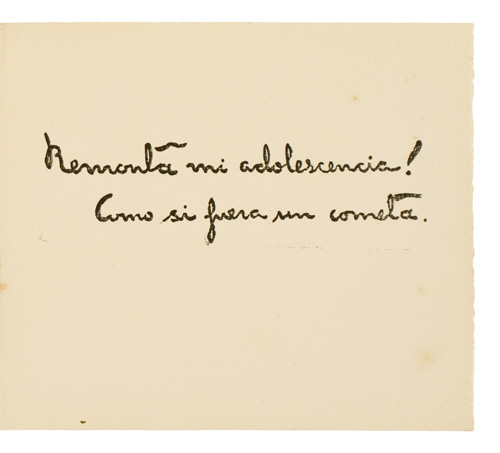 Remonta mi adolescencia!
Como si fuera un cometa.